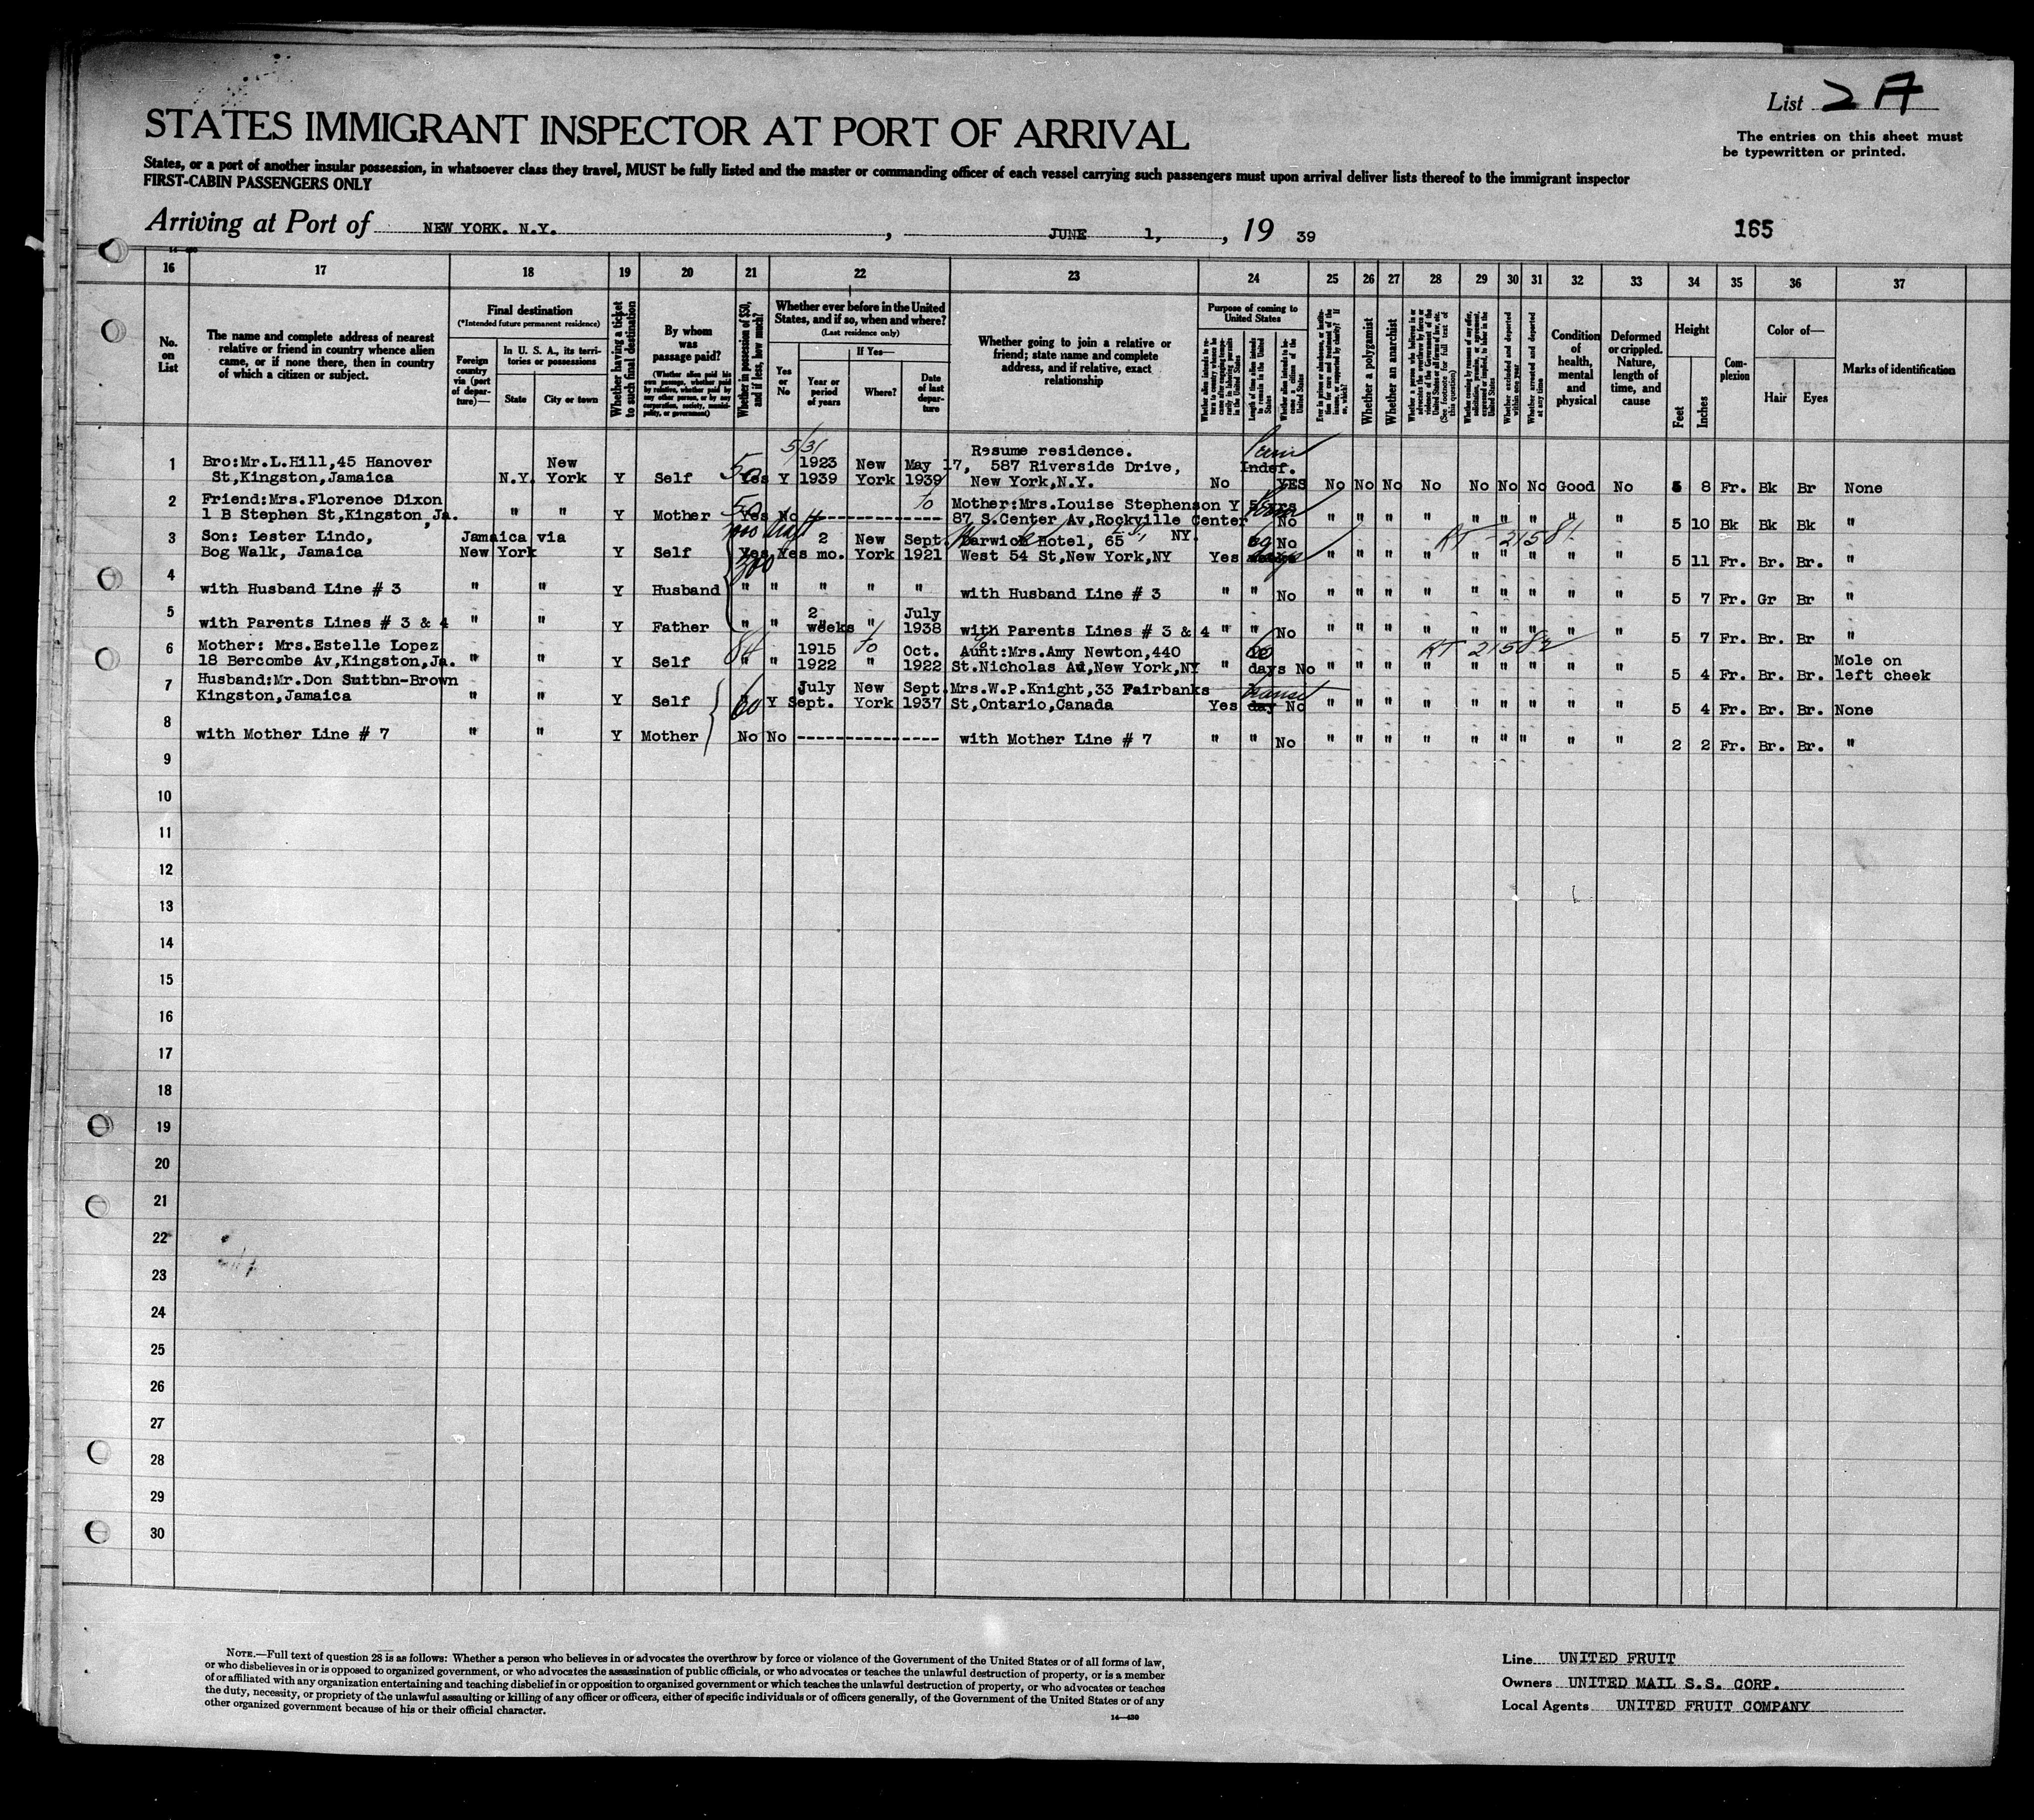 List 2 A
STATES IMMIGRANT INSPECTOR AT PORT OF ARRIVAL
The entries on this sheet must
be typewritten or printed.
States, or a port of another insular possession, in whatsoever class they travel, MUST be fully listed and the master or commanding officer of each vessel carrying such passengers must upon arrival deliver lists thereof to the immigrant inspector
FIRST-CABIN PASSENGERS ONLY
Arriving at Port of NEW YORK. N.Y. , JUNE 1, , 19 39
165
16 17 18 19 20 21 22 23 24 25 26 27 28 29 30 31 32 33 34 35 36 37
No. on List
The name and complete address of nearest
relative or friend in country whence alien
came, or if none there, then in country
of which a citizen or subject.
Final destination
(*Intended future permanent residence)
Foreign country via (port of departure)—
In U. S. A., its territories or possessions
State
City or town
Whether having a ticket to such final destination
By whom was passage paid?
(Whether alien paid his own passage, whether paid by relative, whether paid by any other person, or by any corporation, society, municipality, or government)
Whether in possession of $50, and if less, how much?
Whether ever before in the United
States, and if so, when and where?
(Last residence only)
Yes or No
If Yes—
Year or period of years
Where?
Date of last departure
Whether going to join a relative or
friend; state name and complete
address, and if relative, exact
relationship
Purpose of coming to United States
Length of time alien intends to remain in the United States
Whether alien intends to become a citizen of the United States
Whether a polygamist
Whether an anarchist
Whether excluded and deported within one year
Whether arrested and deported at any time
Condition of health, mental and physical
Deformed or crippled. Nature, length of time, and cause
Height
Feet
Inches
Complexion
Color of—
Hair
Eyes
Marks of identification
5/31 Resume residence.
1 Bro:Mr.L.Hill,45 Hanover New 1923 New May 17, 587 Riverside Drive, Indef.
St,Kingston,Jamaica N.Y. York Y Self 50 Yes Y 1939 York 1939 New York,N.Y. No YES No No No No No No No Good No 5 8 Fr. Bk Br None
2 Friend:Mrs.Florence Dixon 50 to Mother:Mrs.Louise Stephenson Y 5 yrs
1 B Stephen St,Kingston,Ja. " " Y Mother Yes No --------------- 87 S.Center Av,Rockville Center No " " " " " " " " " 5 10 Bk Bk Bk "
NY.
3 Son: Lester Lindo, Jamaica via 2 New Sept. Warwick Hotel, 65 No
Bog Walk, Jamaica New York Y Self Yes Yes mo. York 1921 West 54 St,New York,NY Yes " " " " " " " " " 5 11 Fr. Br. Br. "
RT-21581
300
4 with Husband Line # 3 " " Y Husband " " " " " with Husband Line # 3 " " No " " " " " " " " " 5 7 Fr. Gr Br "
5 2 July
with Parents Lines # 3 & 4 " " Y Father " " weeks " 1938 with Parents Lines # 3 & 4 " " No " " " " " " " " " 5 7 Fr. Br. Br "
6 Mother: Mrs.Estelle Lopez 84 1915 to Oct. Aunt:Mrs.Amy Newton,440 RT 21582
18 Bercombe Av,Kingston,Ja. " " Y Self " " 1922 " 1922 St.Nicholas Av,New York,NY " days No " " " " " " " " " 5 4 Fr. Br. Br. Mole on left cheek
7 Husband:Mr.Don Sutton-Brown July New Sept. Mrs.W.P.Knight,33 Fairbanks transit
Kingston,Jamaica " " Y Self 60 Y Sept. York 1937 St,Ontario,Canada Yes day No " " " " " " " " " 5 4 Fr. Br. Br. None
8 with Mother Line # 7 " " Y Mother No No --------------- with Mother Line # 7 " " No " " " " " " " " " 2 2 Fr. Br. Br. "
9
10
11
12
13
14
15
16
17
18
19
20
21
22
23
24
25
26
27
28
29
30
NOTE.—Full text of question 28 is as follows: Whether a person who believes in or advocates the overthrow by force or violence of the Government of the United States or of all forms of law,
or who disbelieves in or is opposed to organized government, or who advocates the assassination of public officials, or who advocates or teaches the unlawful destruction of property, or is a member
of or affiliated with any organization entertaining and teaching disbelief in or opposition to organized government or which teaches the unlawful destruction of property, or who advocates or teaches
the duty, necessity, or propriety of the unlawful assaulting or killing of any officer or officers, either of specific individuals or of officers generally, of the Government of the United States or of any
other organized government because of his or their official character.
14—430
Line UNITED FRUIT
Owners UNITED MAIL S.S. CORP.
Local Agents UNITED FRUIT COMPANY